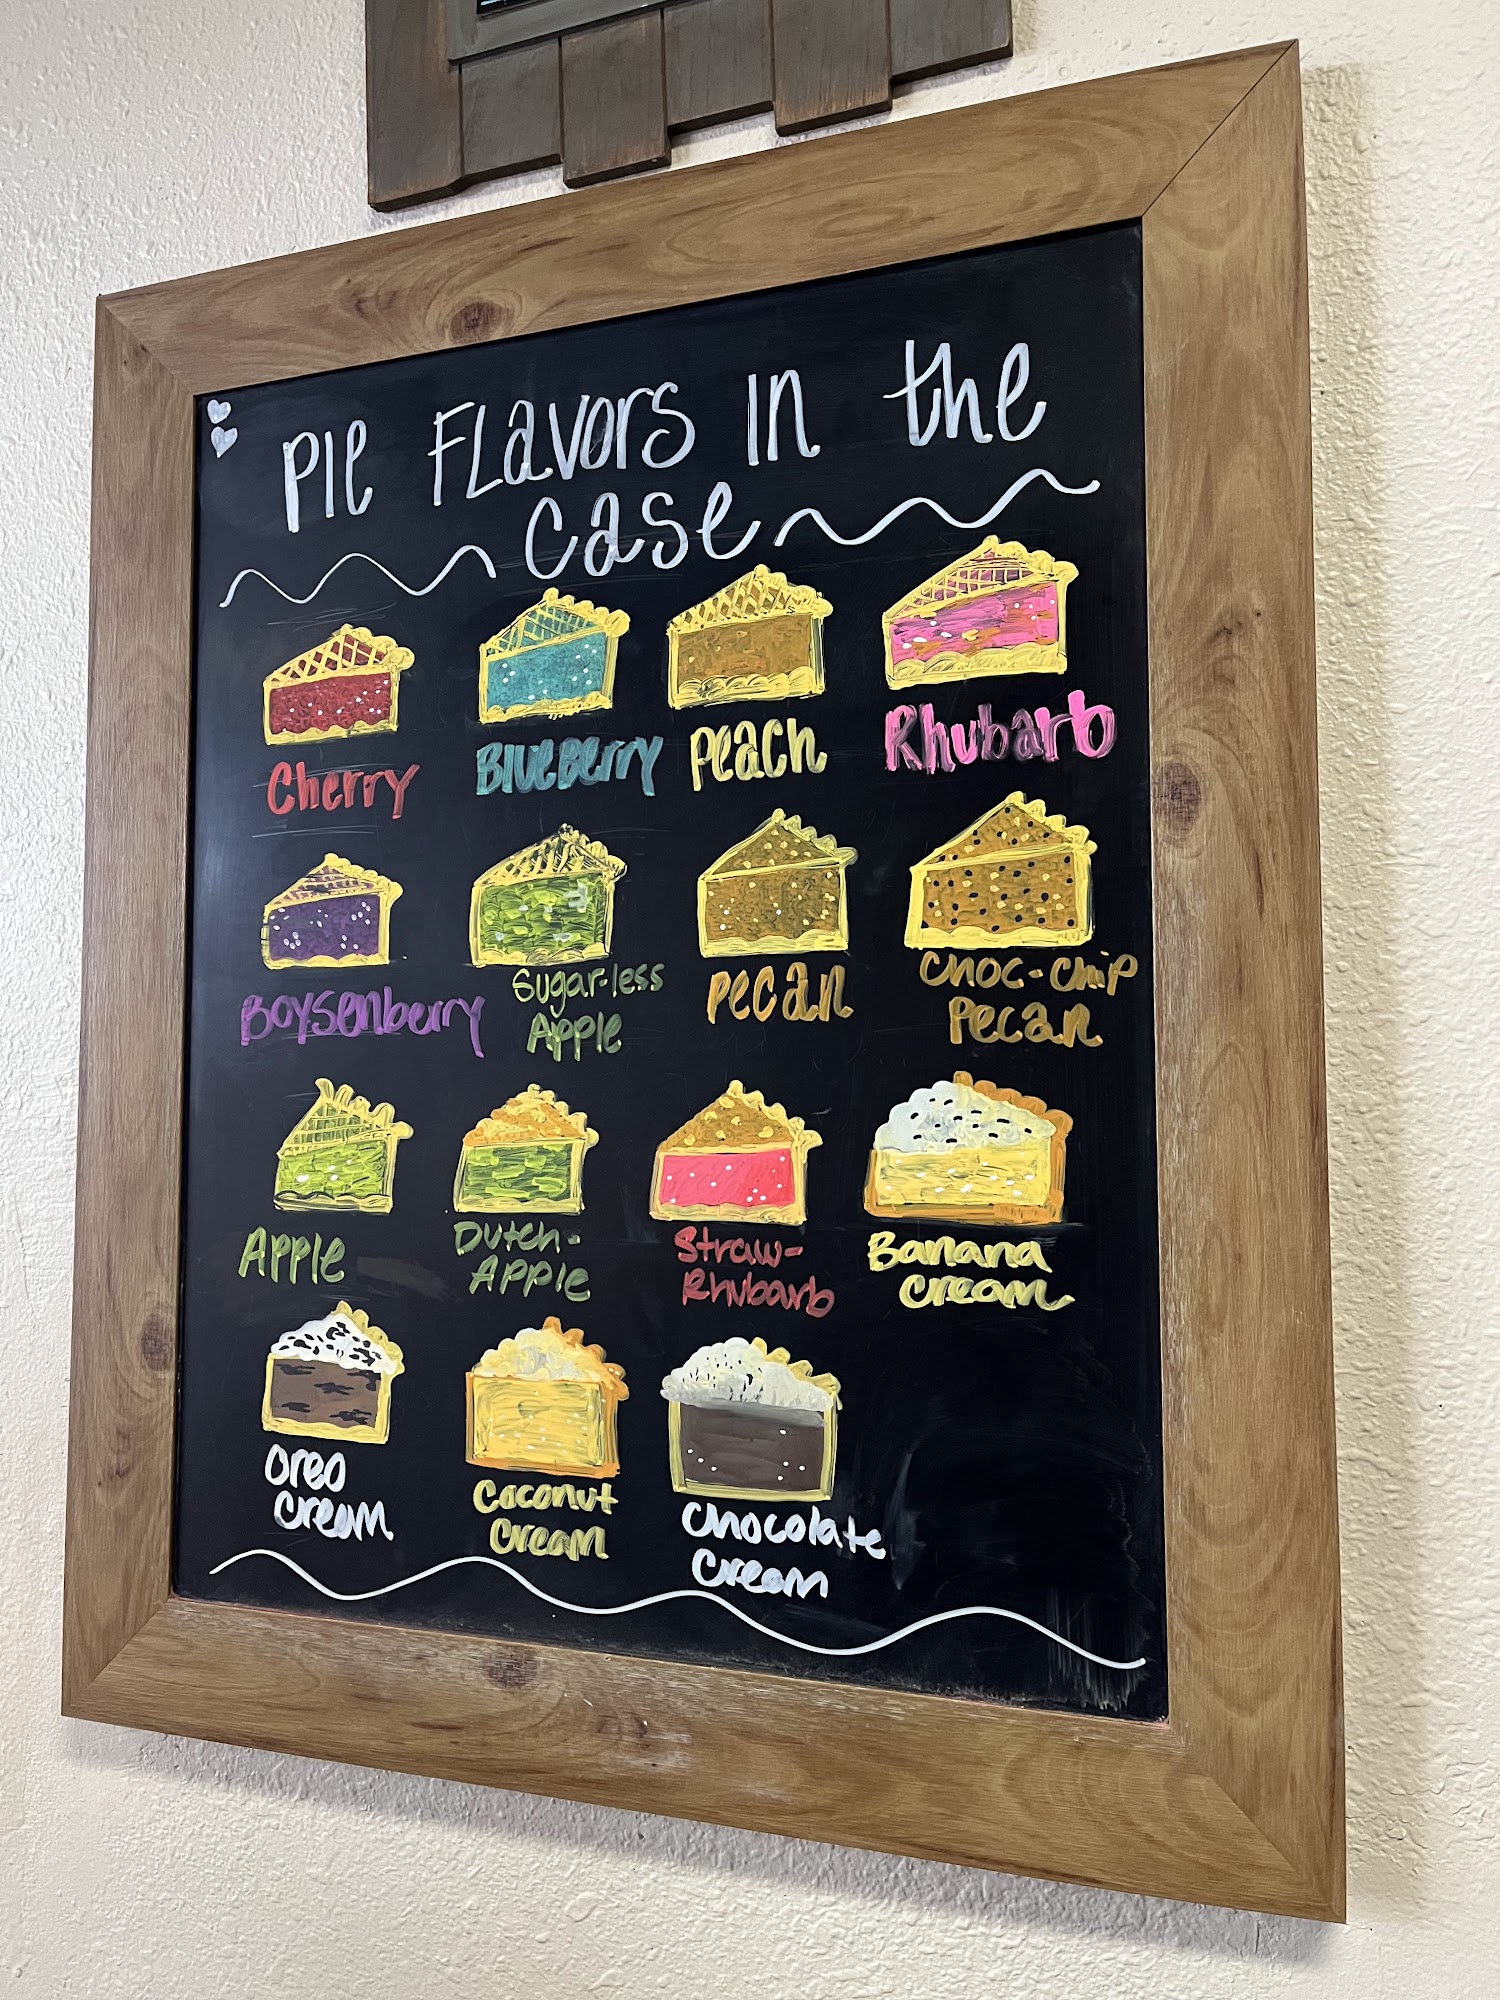 PIE FLavors In the
case
Cherry
Blueberry
Peach
Rhubarb
Boysenberry
Sugar-less
Apple
Pecan
Choc-Chip
Pecan
Apple
Dutch-
Apple
Straw-
Rhubarb
Banana
Cream
Oreo
Cream
Coconut
Cream
Chocolate
Cream